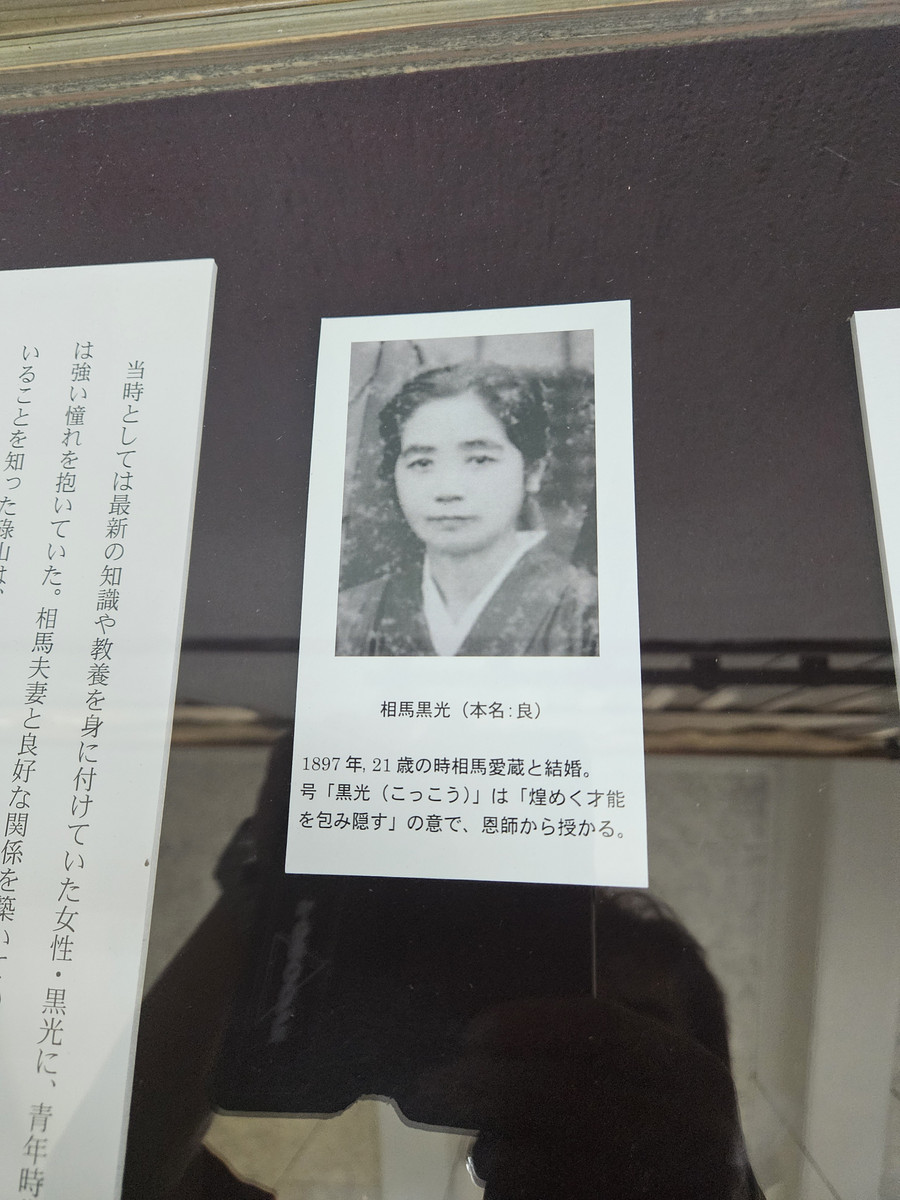 当時としては最新の知識や教養を身に付けていた女性・黒光に、青年時
は強い憧れを抱いていた。相馬夫妻と良好な関係を築い
いることを知った碌山は、
相馬黒光（本名：良）
1897年, 21歳の時相馬愛蔵と結婚。
号「黒光（こっこう）」は「煌めく才能
を包み隠す」の意で、恩師から授かる。